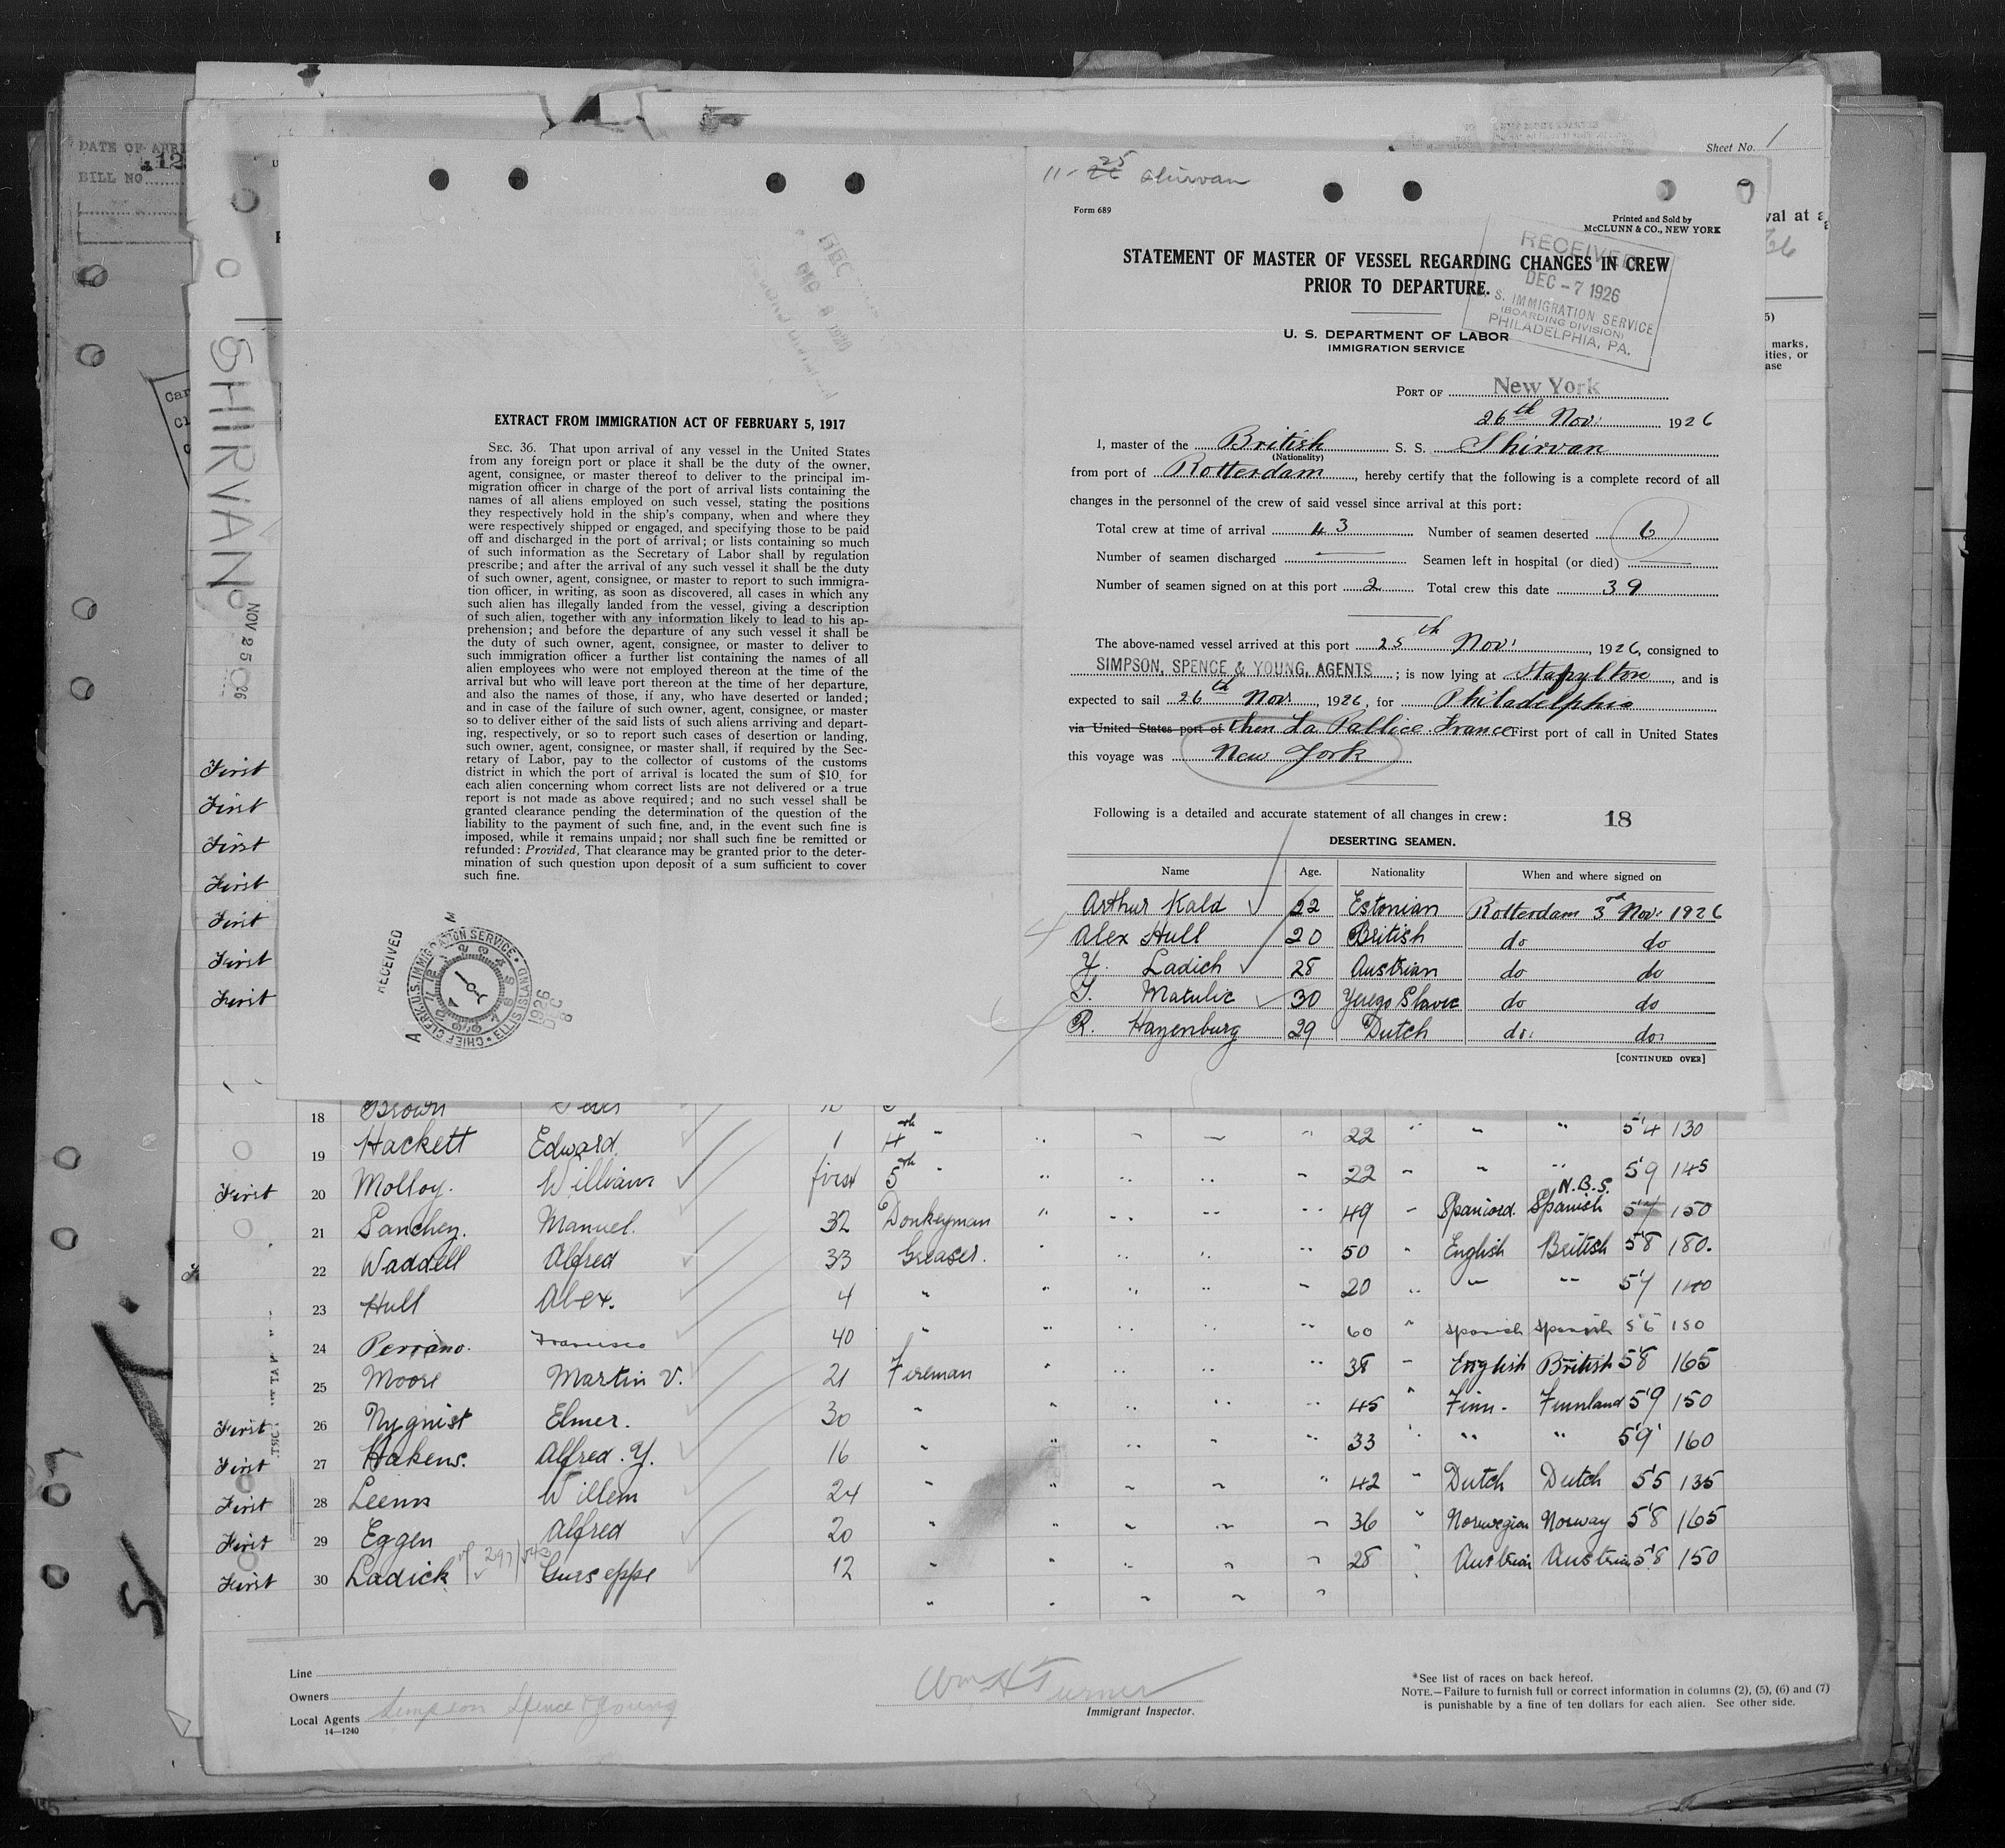 Sheet No. 1
DATE OF
BILL NO
SHIRVAN
NOV 25 1926
EXTRACT FROM IMMIGRATION ACT OF FEBRUARY 5, 1917
SEC. 36. That upon arrival of any vessel in the United States
from any foreign port or place it shall be the duty of the owner,
agent, consignee, or master thereof to deliver to the principal im-
migration officer in charge of the port of arrival lists containing the
names of all aliens employed on such vessel, stating the positions
they respectively hold in the ship's company, when and where they
were respectively shipped or engaged, and specifying those to be paid
off and discharged in the port of arrival; or lists containing so much
of such information as the Secretary of Labor shall by regulation
prescribe; and after the arrival of any such vessel it shall be the duty
of such owner, agent, consignee, or master to report to such immigra-
tion officer, in writing, as soon as discovered, all cases in which any
such alien has illegally landed from the vessel, giving a description
of such alien, together with any information likely to lead to his ap-
prehension; and before the departure of any such vessel it shall be
the duty of such owner, agent, consignee, or master to deliver to
such immigration officer a further list containing the names of all
alien employees who were not employed thereon at the time of the
arrival but who will leave port thereon at the time of her departure,
and also the names of those, if any, who have deserted or landed;
and in case of the failure of such owner, agent, consignee, or master
so to deliver either of the said lists of such aliens arriving and depart-
ing, respectively, or so to report such cases of desertion or landing,
such owner, agent, consignee, or master shall, if required by the Sec-
retary of Labor, pay to the collector of customs of the customs
district in which the port of arrival is located the sum of $10 for
each alien concerning whom correct lists are not delivered or a true
report is not made as above required; and no such vessel shall be
granted clearance pending the determination of the question of the
liability to the payment of such fine, and, in the event such fine is
imposed, while it remains unpaid; nor shall such fine be remitted or
refunded: Provided, That clearance may be granted prior to the deter-
mination of such question upon deposit of a sum sufficient to cover
such fine.
RECEIVED
CHIEF CLERK U.S. IMMIGRATION SERVICE ELLIS ISLAND
1926 DEC 8
11-25 Shirvan
Form 689
Printed and Sold by
McCLUNN & CO., NEW YORK
STATEMENT OF MASTER OF VESSEL REGARDING CHANGES IN CREW
PRIOR TO DEPARTURE.
RECEIVED
DEC -7 1926
U. S. IMMIGRATION SERVICE
(BOARDING DIVISION)
PHILADELPHIA, PA.
U. S. DEPARTMENT OF LABOR
IMMIGRATION SERVICE
PORT OF New York
26th Nov: 1926
I, master of the British S. S. Shirvan
(Nationality)
from port of Rotterdam, hereby certify that the following is a complete record of all
changes in the personnel of the crew of said vessel since arrival at this port:
Total crew at time of arrival 43 Number of seamen deserted 6
Number of seamen discharged — Seamen left in hospital (or died) —
Number of seamen signed on at this port 2 Total crew this date 39
The above-named vessel arrived at this port 25th Nov: , 1926, consigned to
SIMPSON, SPENCE & YOUNG, AGENTS; is now lying at Stapylton, and is
expected to sail 26th Nov: , 1926, for Philadelphia
via United States port of then La Pallice. France First port of call in United States
this voyage was New York
Following is a detailed and accurate statement of all changes in crew: 18
DESERTING SEAMEN.
Name Age. Nationality When and where signed on
Arthur Kald 22 Estonian Rotterdam 3rd Nov: 1926
Alex Hull 20 British do do
Y. Ladich 28 Austrian do do
Y. Matulic 30 Yeugo Slavic do do
R. Hazenburg 29 Dutch do: do:
[CONTINUED OVER]
First
First
First
First
First
First
First
18 Brown
19 Hackett Edward. 1 4th " 22 5'4 130
First 20 Molloy. William first 5th " 22 5'9 145
N.B.S.
21 Sanchez. Manuel. 32 Donkeyman 49 Spaniard. Spanish 5'7 150
22 Waddell Alfred 33 Greaser. 50 English British 5'8 180.
23 Hull Alex. 4 " 20 5'7 140
24 Perrano. Francisco 40 " 60 Spanish Spanish 5'6 150
25 Moore Martin V. 21 Fireman 38 English British 5'8 165
First 26 Nyquist Elmer. 30 " 45 Finn- Finnland 5'9 150
First 27 Hakens. Alfred. Y. 16 " 33 " " 5'9 160
First 28 Leems Willem 24 " 42 Dutch Dutch 5'5 135
First 29 Eggen Alfred 20 " 36 Norwegian Norway 5'8 165
First 30 Ladick Guiseppe 12 " 28 Austrian Austria 5'8 150
Line
Owners
Local Agents Simpson Spence & Young
14—1240
Wm H Turner
Immigrant Inspector.
*See list of races on back hereof.
NOTE.—Failure to furnish full or correct information in columns (2), (5), (6) and (7)
is punishable by a fine of ten dollars for each alien. See other side.